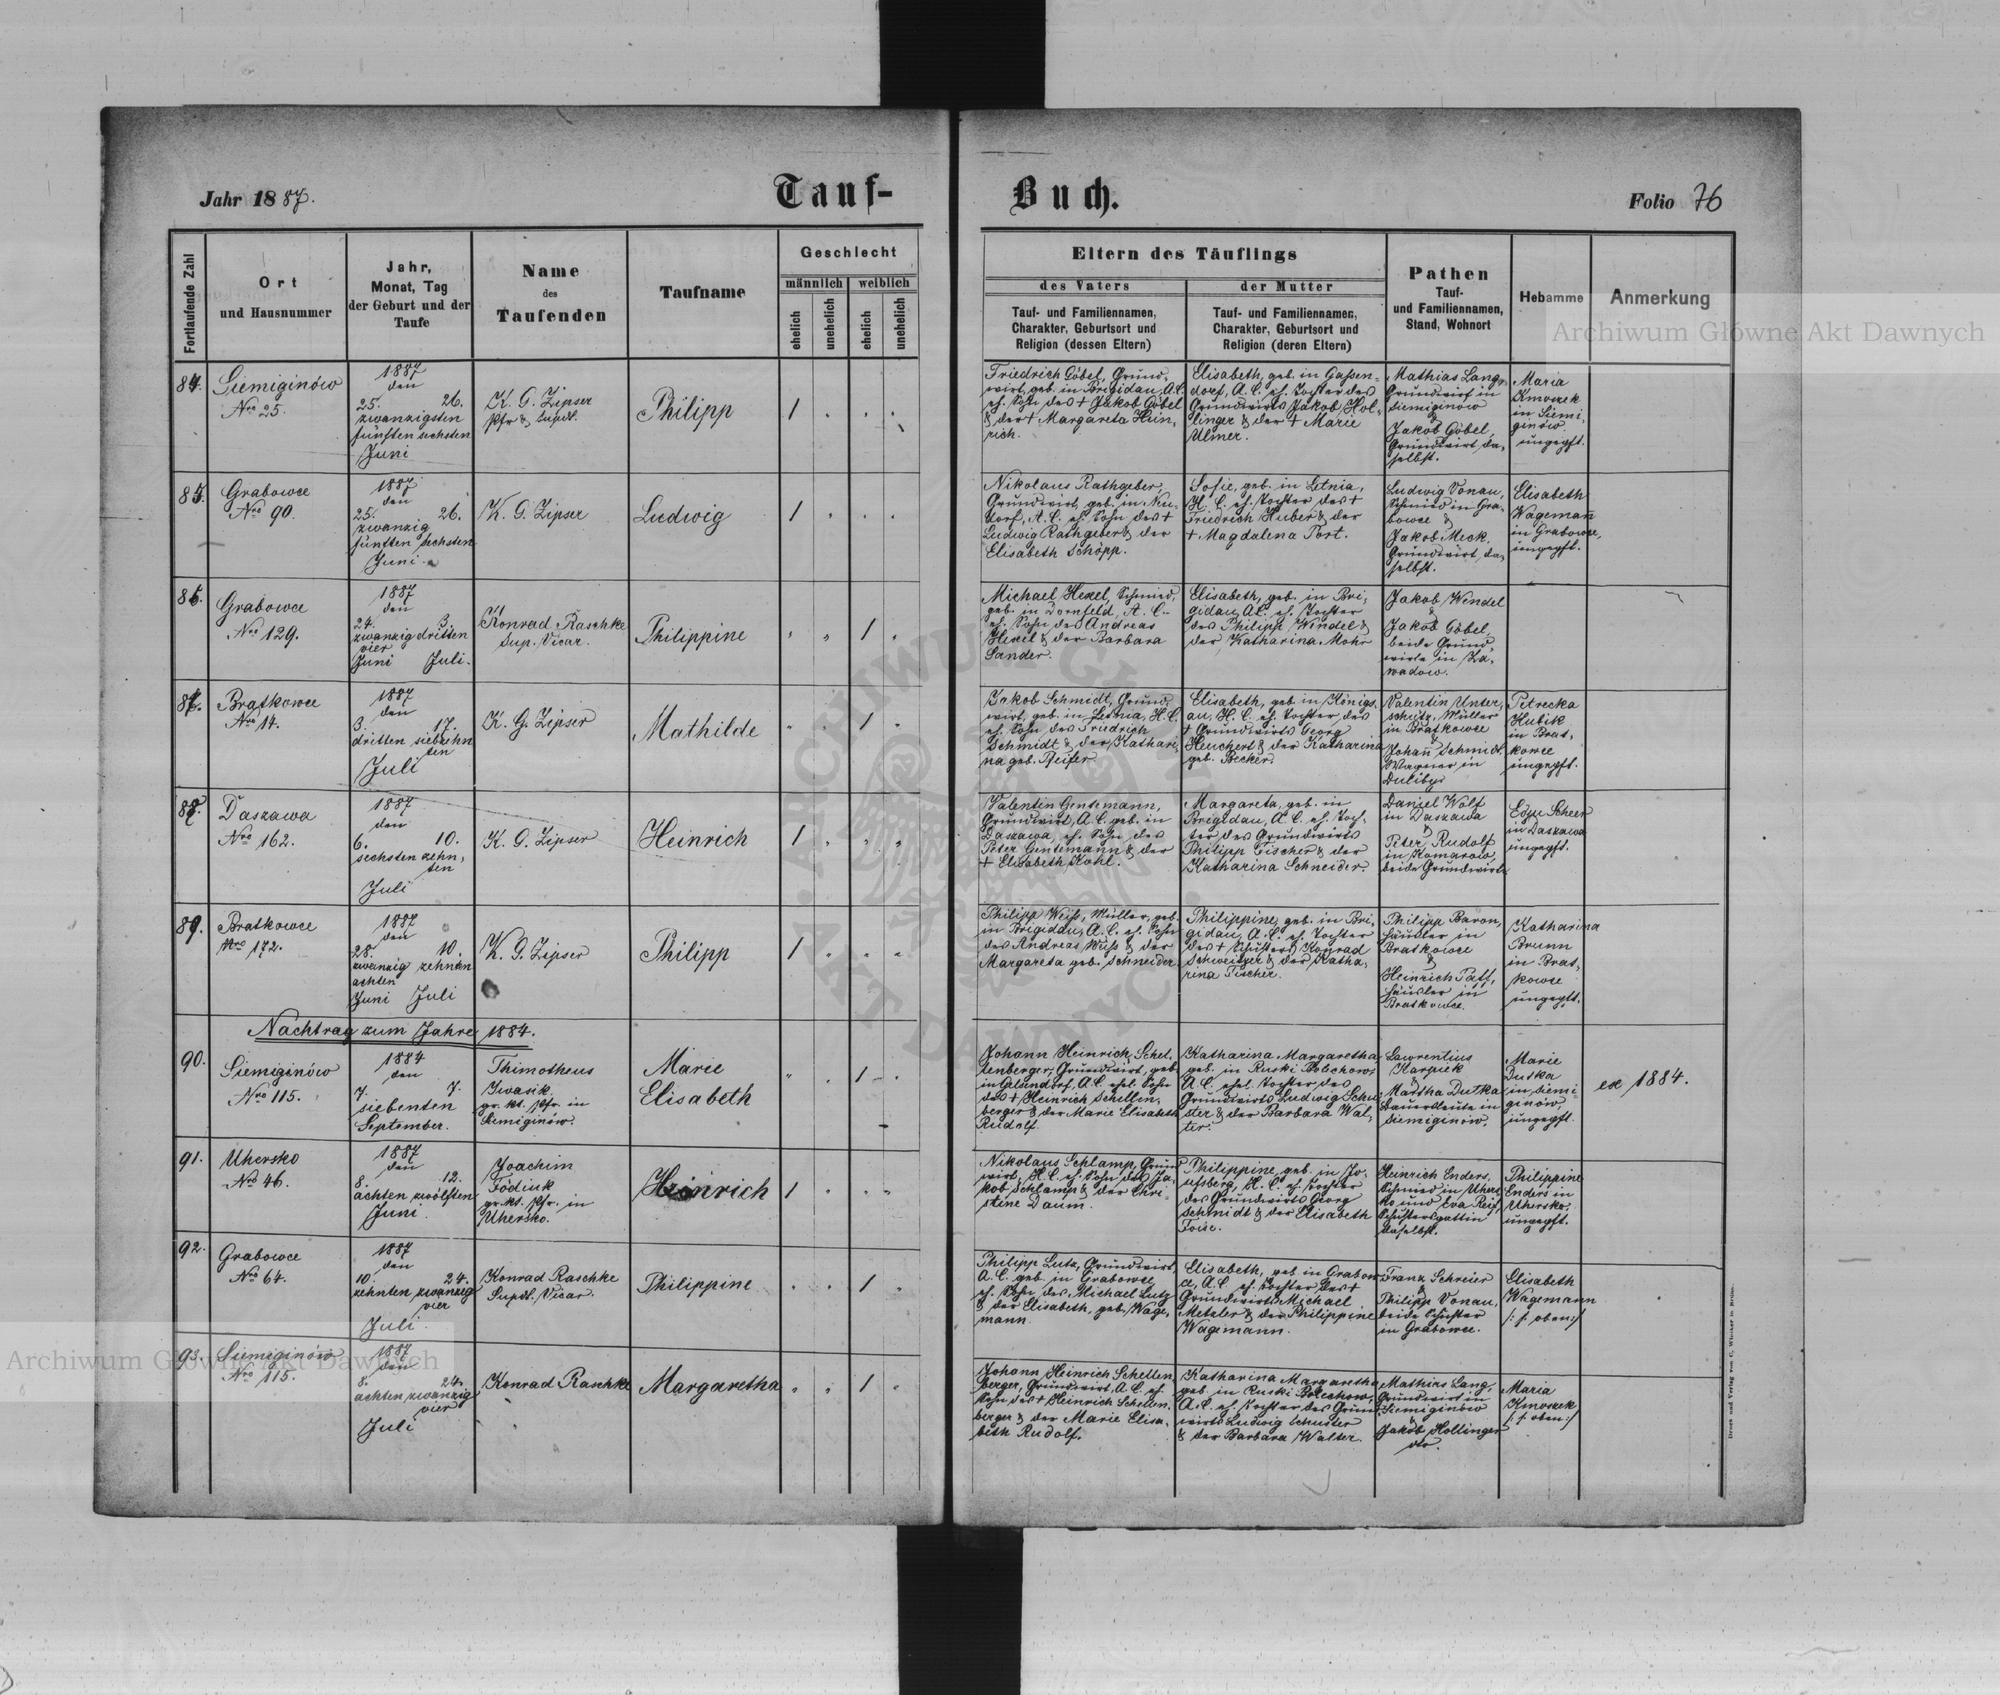 Jahr 1887.
Tauf-
Buch.
Folio 76
Fortlaufende Zahl
Ort
und Hausnummer
Jahr,
Monat, Tag
der Geburt und der
Taufe
Name
des
Taufenden
Taufname
Geschlecht
männlich
weiblich
ehelich
unehelich
ehelich
unehelich
Eltern des Täuflings
des Vaters
Tauf- und Familiennamen,
Charakter, Geburtsort und
Religion (dessen Eltern)
der Mutter
Tauf- und Familiennamen,
Charakter, Geburtsort und
Religion (deren Eltern)
Pathen
Tauf-
und Familiennamen,
Stand, Wohnort
Hebamme
Anmerkung
84.
Siemiginów
Nro 25.
1887
den
25. 26.
zwanzigsten
fünften sechsten
Juni
K. G. Zipser
Pfr & Supdt.
Philipp
1
Friedrich Göbel, Grund-
wirt, geb. in Brigidau, A.C.
eh. Sohn des + Jakob Göbel
& der + Margareta Hein-
rich.
Elisabeth, geb. in Gassen-
dorf, A.C. eh. Tochter des
Grundwirts Jakob Hol-
linger & der + Marie
Ulmer.
Mathias Lang,
Grundwirt in
Siemiginów
&
Jakob Göbel,
Grundwirt da-
selbst.
Maria
Kmoszek
in Siemi-
ginów.
ungepft.
85.
Grabowce
Nro 90.
1887
den
25. 26.
zwanzig
fünften sechsten
Juni
K. G. Zipser
Ludwig
1
Nikolaus Rathgeber,
Grundwirt, geb. in Neu-
dorf, A.C. eh. Sohn des +
Ludwig Rathgeber & der
Elisabeth Schöpp.
Sofie, geb. in Letnia,
H.C. eh. Tochter des +
Friedrich Huber & der
+ Magdalena Port.
Ludwig Vonau,
Schmied in Gra-
bowce &
Jakob Meck,
Grundwirt, da-
selbst.
Elisabeth
Wagemann
in Grabowce,
ungepft.
86.
Grabowce
Nro 129.
1887
den
24. 3.
zwanzig dritten
vier
Juni Juli.
Konrad Raschke
Sup. Vicar.
Philippine
1
Michael Hexel, Schmied,
geb. in Dornfeld, A.C.
eh. Sohn des Andreas
Hexel & der Barbara
Sander.
Elisabeth, geb. in Bri-
gidau, A.C. eh. Tochter
des Philipp Wendel &
der Katharina Mohr
Jakob Wendel
&
Jakob Göbel,
beide Grund-
wirte in Za-
wadow.
87.
Bratkowce
Nro 14.
1887
den
3. 17.
dritten siebzehn
ten
Juli
K. G. Zipser
Mathilde
1
Jakob Schmidt, Grund-
wirt, geb. in Letnia, H.C.
eh. Sohn des Friedrich
Schmidt & der Kathari-
na geb. Pfeifer.
Elisabeth, geb. in Königs-
au, H.C. eh. Tochter des
+ Grundwirts Georg
Heuchert & der Katharina
geb. Becker.
Valentin Unter-
schütz, Müller
in Bratkowce
&
Johann Schmidt
Wagner in
Duliby.
Petrecka
Hubik
in Brat-
kowce
ungepft.
88.
Daszawa
Nro 162.
1887
den
6. 10.
sechsten zehn-
ten
Juli
K. G. Zipser
Heinrich
1
Valentin Gentemann,
Grundwirt, A.C. geb. in
Daszawa, eh. Sohn des
Peter Gentemann & der
+ Elisabeth Kohl.
Margareta, geb. in
Brigidau, A.C. eh. Toch-
ter des Grundwirts
Philipp Fischer & der
Katharina Schneider.
Daniel Wolf
in Daszawa
&
Peter Rudolf
in Komarow,
beide Grundwirte
Scheer
in Daszawa
ungepft.
89.
Bratkowce
Nro 172.
1887
den
28. 10.
zwanzig zehnten
achten
Juni Juli
K. G. Zipser
Philipp
1
Philipp Weiß, Müller, geb.
in Brigidau, A.C. eh. Sohn
des Andreas Weiß & der
Margareta geb. Schneider
Philippine, geb. in Bri-
gidau, A.C. eh. Tochter
des + Schusters Konrad
Schweitzer & der Katha-
rina Fischer.
Philipp Baron,
Häusler in
Bratkowce
&
Heinrich Paff,
Häusler in
Bratkowce.
Katharina
Brunn
in Brat-
kowce
ungepft.
Nachtrag zum Jahre 1884.
90.
Siemiginów
Nro 115.
1884
den
7. 7.
siebenten
September.
Thimotheus
Iwasik
gr. kt. Pfr. in
Siemiginów.
Marie
Elisabeth
1
Johann Heinrich Schel-
lenberger, Grundwirt, geb.
in Gelsendorf, A.C. ehel. Sohn
des + Heinrich Schellen-
berger & der Marie Elisabeth
Rudolf.
Katharina Margaretha
geb. in Ruski Bolechow,
A.C. ehel. Tochter des
Grundwirts Ludwig Schu-
ster & der Barbara Wal-
ter.
Lawrentius
Karpiek
&
Martha Dutka
Bauersleute in
Siemiginów.
Marie
Dutka
in Siemi-
ginów,
ungepft.
ex 1884.
91.
Uhersko
Nro 46.
1887
den
8. 12.
achten zwölften
Juni.
Joachim
Födiuk
gr. kt. Pfr. in
Uhersko.
Heinrich
1
Nikolaus Schlamp, Grund-
wirt, H.C. eh. Sohn des Ja-
kob Schlamp & der Chri-
stine Daum.
Philippine, geb. in Jo-
sefsberg, H.C. eh. Tochter
des Grundwirts Georg
Schmidt & der Elisabeth
Heinrich Enders,
Schmied in Uhers-
ko und Eva Reif,
Schustersgattin
daselbst.
Philippine
Enders in
Uhersko,
ungepft.
92.
Grabowce
Nro 64.
1887
den
10. 24.
zehnten zwanzig
vier
Juli.
Konrad Raschke
Supdt. Vicar.
Philippine
1
Philipp Lutz, Grundwirt
A.C. geb. in Grabowce,
eh. Sohn des Michael Lutz
& der Elisabeth, geb. Wage-
mann.
Elisabeth, geb. in Grabow-
ce, A.C. eh. Tochter des +
Grundwirts Michael
Metzler & der Philippine
Wagemann.
Franz Schreier
&
Philipp Vonau,
beide Schuster
in Grabowce.
Elisabeth
Wagemann
/: s. oben :/
93.
Siemiginów
Nro 115.
1887
den
8. 24.
achten zwanzig
vier
Juli
Konrad Raschke
Margaretha
1
Johann Heinrich Schellen-
berger, Grundwirt, A.C. eh.
Sohn des + Heinrich Schellen-
berger & der Marie Elisa-
beth Rudolf.
Katharina Margaretha
geb. in Ruski Bolechow,
A.C. eh. Tochter des Grund-
wirts Ludwig Schuster
& der Barbara Walter.
Mathias Lang,
Grundwirt in
Siemiginów
&
Jakob Hollinger
dto.
Maria
Kmoszek
/: s. oben :/
Druck und Verlag von C. Winiker in Brünn.
Archiwum Główne Akt Dawnych
Archiwum Główne Akt Dawnych
ARCHIWUM GŁÓWNE AKT DAWNYCH